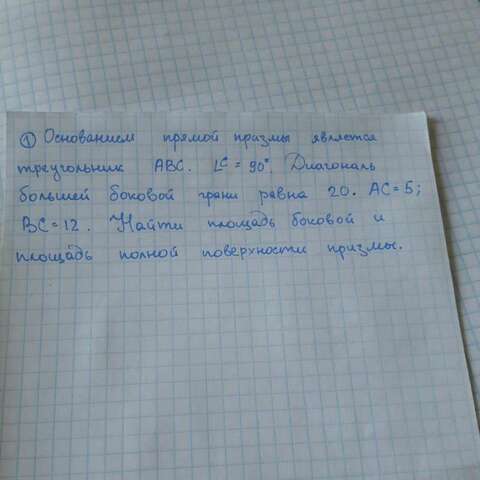 ① Основанием прямой призмы является
треугольник ABC. ∠C = 90°. Диагональ
большей боковой грани равна 20. AC=5;
BC=12. Найти площадь боковой и
площадь полной поверхности призмы.